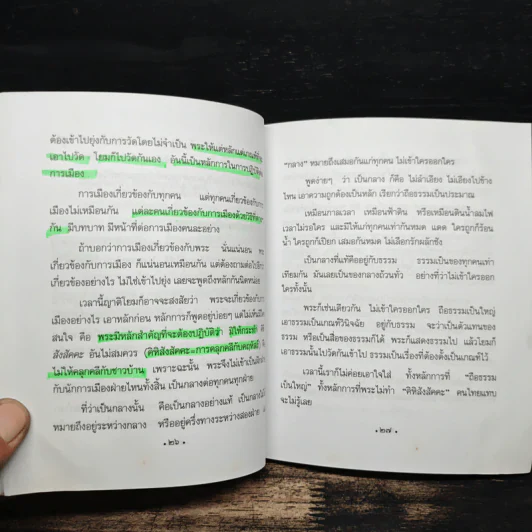 ต้องเข้าไปยุ่งกับการวัดโดยไม่จำเป็น พระให้แต่หลักแต่เกณฑ์ที่จะ
เอาไปวัด โยมก็ไปวัดกันเอง อุ่นนี้เป็นหลักการในการปฏิบัติต่อ
การเมือง
การเมืองเกี่ยวข้องกับทุกคน แต่ทุกคนเกี่ยวข้องกับการ
เมืองไม่เหมือนกัน แต่ละคนเกี่ยวข้องกับการเมืองด้วยวิธีที่
กัน มีบทบาท มีหน้าที่ต่อการเมืองคนละอย่าง
ถ้าบอกว่าการเมืองเกี่ยวข้องกับพระ นั่นแน่นอน
เกี่ยวข้องกับการเมือง ก็แน่นอนเหมือนกัน แต่ต้องถามต่อไป
เกี่ยวข้องอย่างไร ไม่ใช่เข้าไปยุ่ง เลยจะพูดถึงหลักกันนิดหน่อย
เวลานี้ญาติโยมก็อาจจะสงสัยว่า พระจะเกี่ยวข้องกับการ
เมืองอย่างไร เอาหลักก่อน หลักการก็พูดอยู่บ่อยๆ แต่ไม่
สนใจ คือ พระมีหลักสำคัญที่จะต้องปฏิบัติว่า มิให้กระทำ
สังสัคคะ อันไม่สมควร (คิหิสังสัคคะ=การคลุกคลีกับคฤหัสถ์)
ไม่ให้คลุกคลีกับชาวบ้าน เพราะฉะนั้น พระจึงไม่เข้าเป็น
กับนักการเมืองฝ่ายไหนทั้งสิ้น เป็นกลางต่อทุกคนทุกฝ่าย
ที่ว่าเป็นกลางนั้น คือเป็นกลางอย่างแท้ เป็นกลางไม่
หมายถึงอยู่ระหว่างกลาง หรืออยู่ครึ่งทางระหว่างสองฝ่าย
• ๒๖ •
"กลาง" หมายถึงเสมอกันแก่ทุกคน ไม่เข้าใครออกใคร
พูดง่ายๆ ว่า เป็นกลาง ก็คือ ไม่ลำเอียง ไม่เอียงไปข้าง
ไหน เอาความถูกต้องเป็นหลัก เรียกว่าถือธรรมเป็นประมาณ
เหมือนกาลเวลา เหมือนฟ้าดิน หรือเหมือนดินน้ำลมไฟ
เวลาไม่รอใคร และมีให้แก่ทุกคนเท่ากันหมด แดด ใครถูกก็ร้อน
น้ำ ใครถูกก็เปียก เสมอกันหมด ไม่เลือกรักผลักชัง
เป็นกลางที่แท้คืออยู่กับธรรม ธรรมเป็นของทุกคนเท่า
เทียมกัน มันเลยเป็นของกลางถ้วนทั่ว อย่างที่ว่าไม่เข้าใครออก
ใครทั้งนั้น
พระก็เช่นเดียวกัน ไม่เข้าใครออกใคร ถือธรรมเป็นใหญ่
เอาธรรมเป็นเกณฑ์วินิจฉัย อยู่กับธรรม จะว่าเป็นตัวแทนของ
ธรรม หรือเป็นสื่อของธรรมก็ได้ พระก็แสดงธรรมไป แล้วโยมก็
เอาธรรมนั้นไปวัดกันเข้าไป ธรรมเป็นเรื่องที่ต้องตั้งเป็นเกณฑ์ไว้
เวลานี้เราก็ไม่ค่อยเอาใจใส่ ทั้งหลักการที่ "ถือธรรม
เป็นใหญ่" ทั้งหลักการที่พระไม่ทำ "คิหิสังสัคคะ" คนไทยแทบ
จะไม่รู้เลย
• ๒๗ •